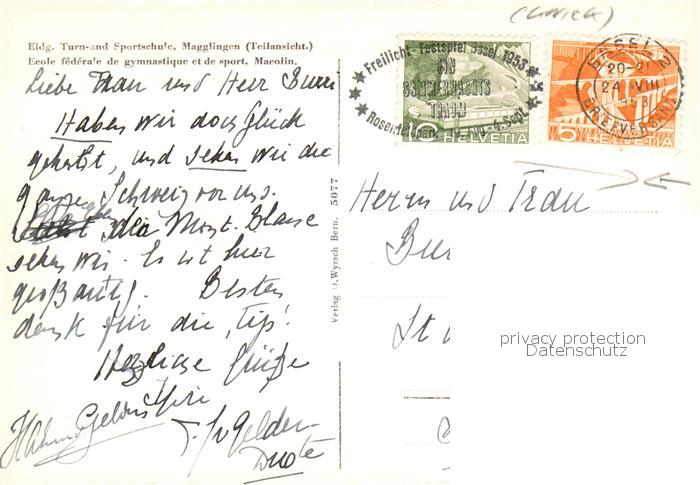 (Zürich)
Eidg. Turn-und Sportschule, Magglingen (Teilansicht.)
Ecole fédérale de gymnastique et de sport, Macolin.
Liebe Frau und Herr Burri
Haben wir doch Glück
gehabt, und sehen wir die
ganze Schweiz vor uns.
Mont. Blanc
sehen wir. Es ist hier
großartig! Besten
dank für die "Tips".
Herzliche Grüße
Ihre
v Gelder-
Verlag O. Wyrsch Bern. 5077
Freilicht-Festspiel Basel 1953
EIN
SOMMERNACHTS
TRAUM
Rosenfeldpark
Sept.
10 HELVETIA
5 HELVETIA
BASEL 2
20-21
24. VIII
BRIEFVERSAND
Herrn und Frau
Bur
St
privacy protection
Datenschutz